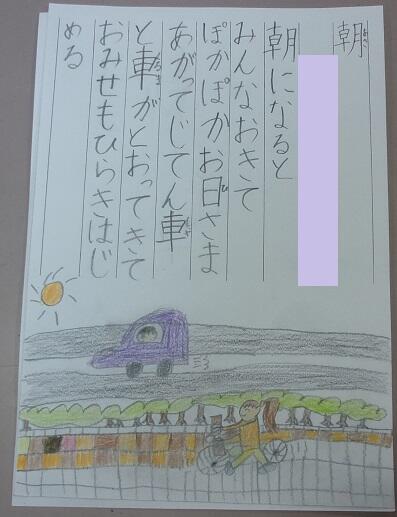 朝
朝になると
みんなおきて
ぽかぽかお日さま
あがってじてん車
と車がとおってきて
おみせもひらきはじ
める